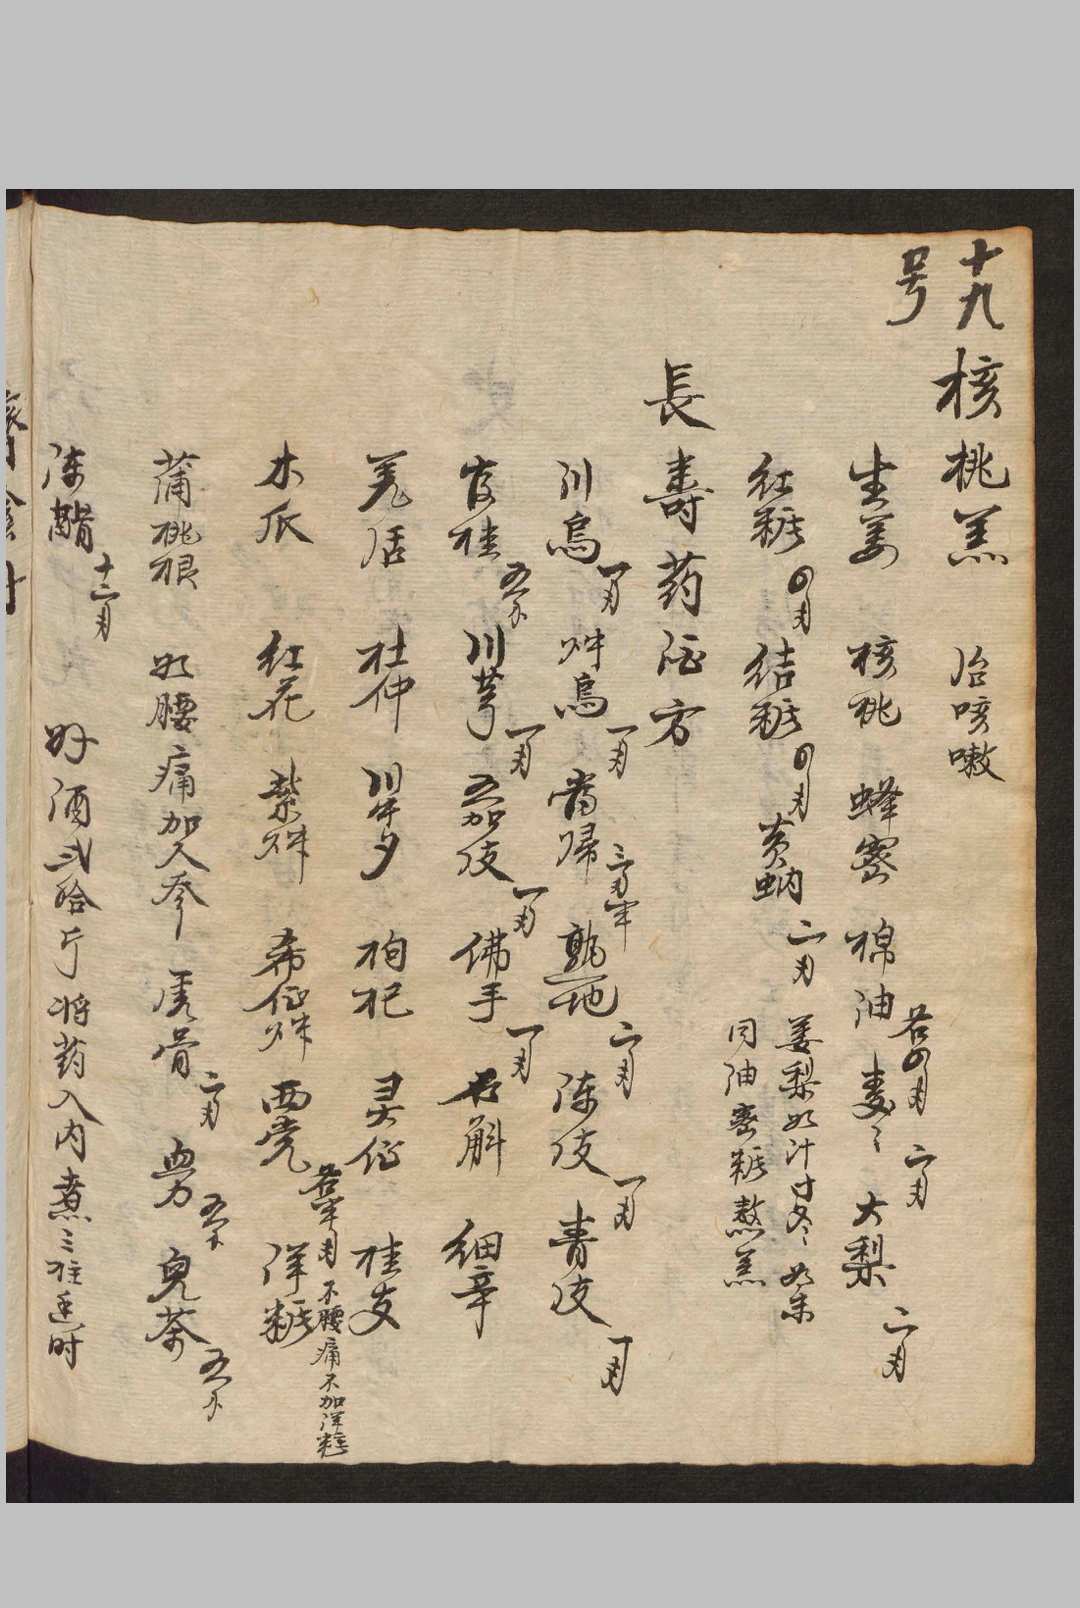 十九号
核桃羔 治咳嗽
生姜 核桃 蜂密 棉油 各四两 麦〻 二两 大梨 二两
红糖 四两 结糖 四两 黄蚋 二两 姜梨如汁
同油密糖熬羔
長壽药酒方
川烏 一两 艸烏 一两 當帰 三两半 熟地 二两 陈皮 一两 青皮 一两
官桂 五分 川芎 一两 五加皮 一两 佛手 一两 石斛 细辛
羌活 杜仲 川牛夕 枸杞 灵仙 桂支
木瓜 红花 紫艸 希仙艸 各半两 洋糖 不腰痛不加洋糖
蒲桃根 如腰痛加人参 虎骨 二两 五分 兒茶 五分
陈醋 十二两 好酒弍拾斤将药入内煮三炷香时